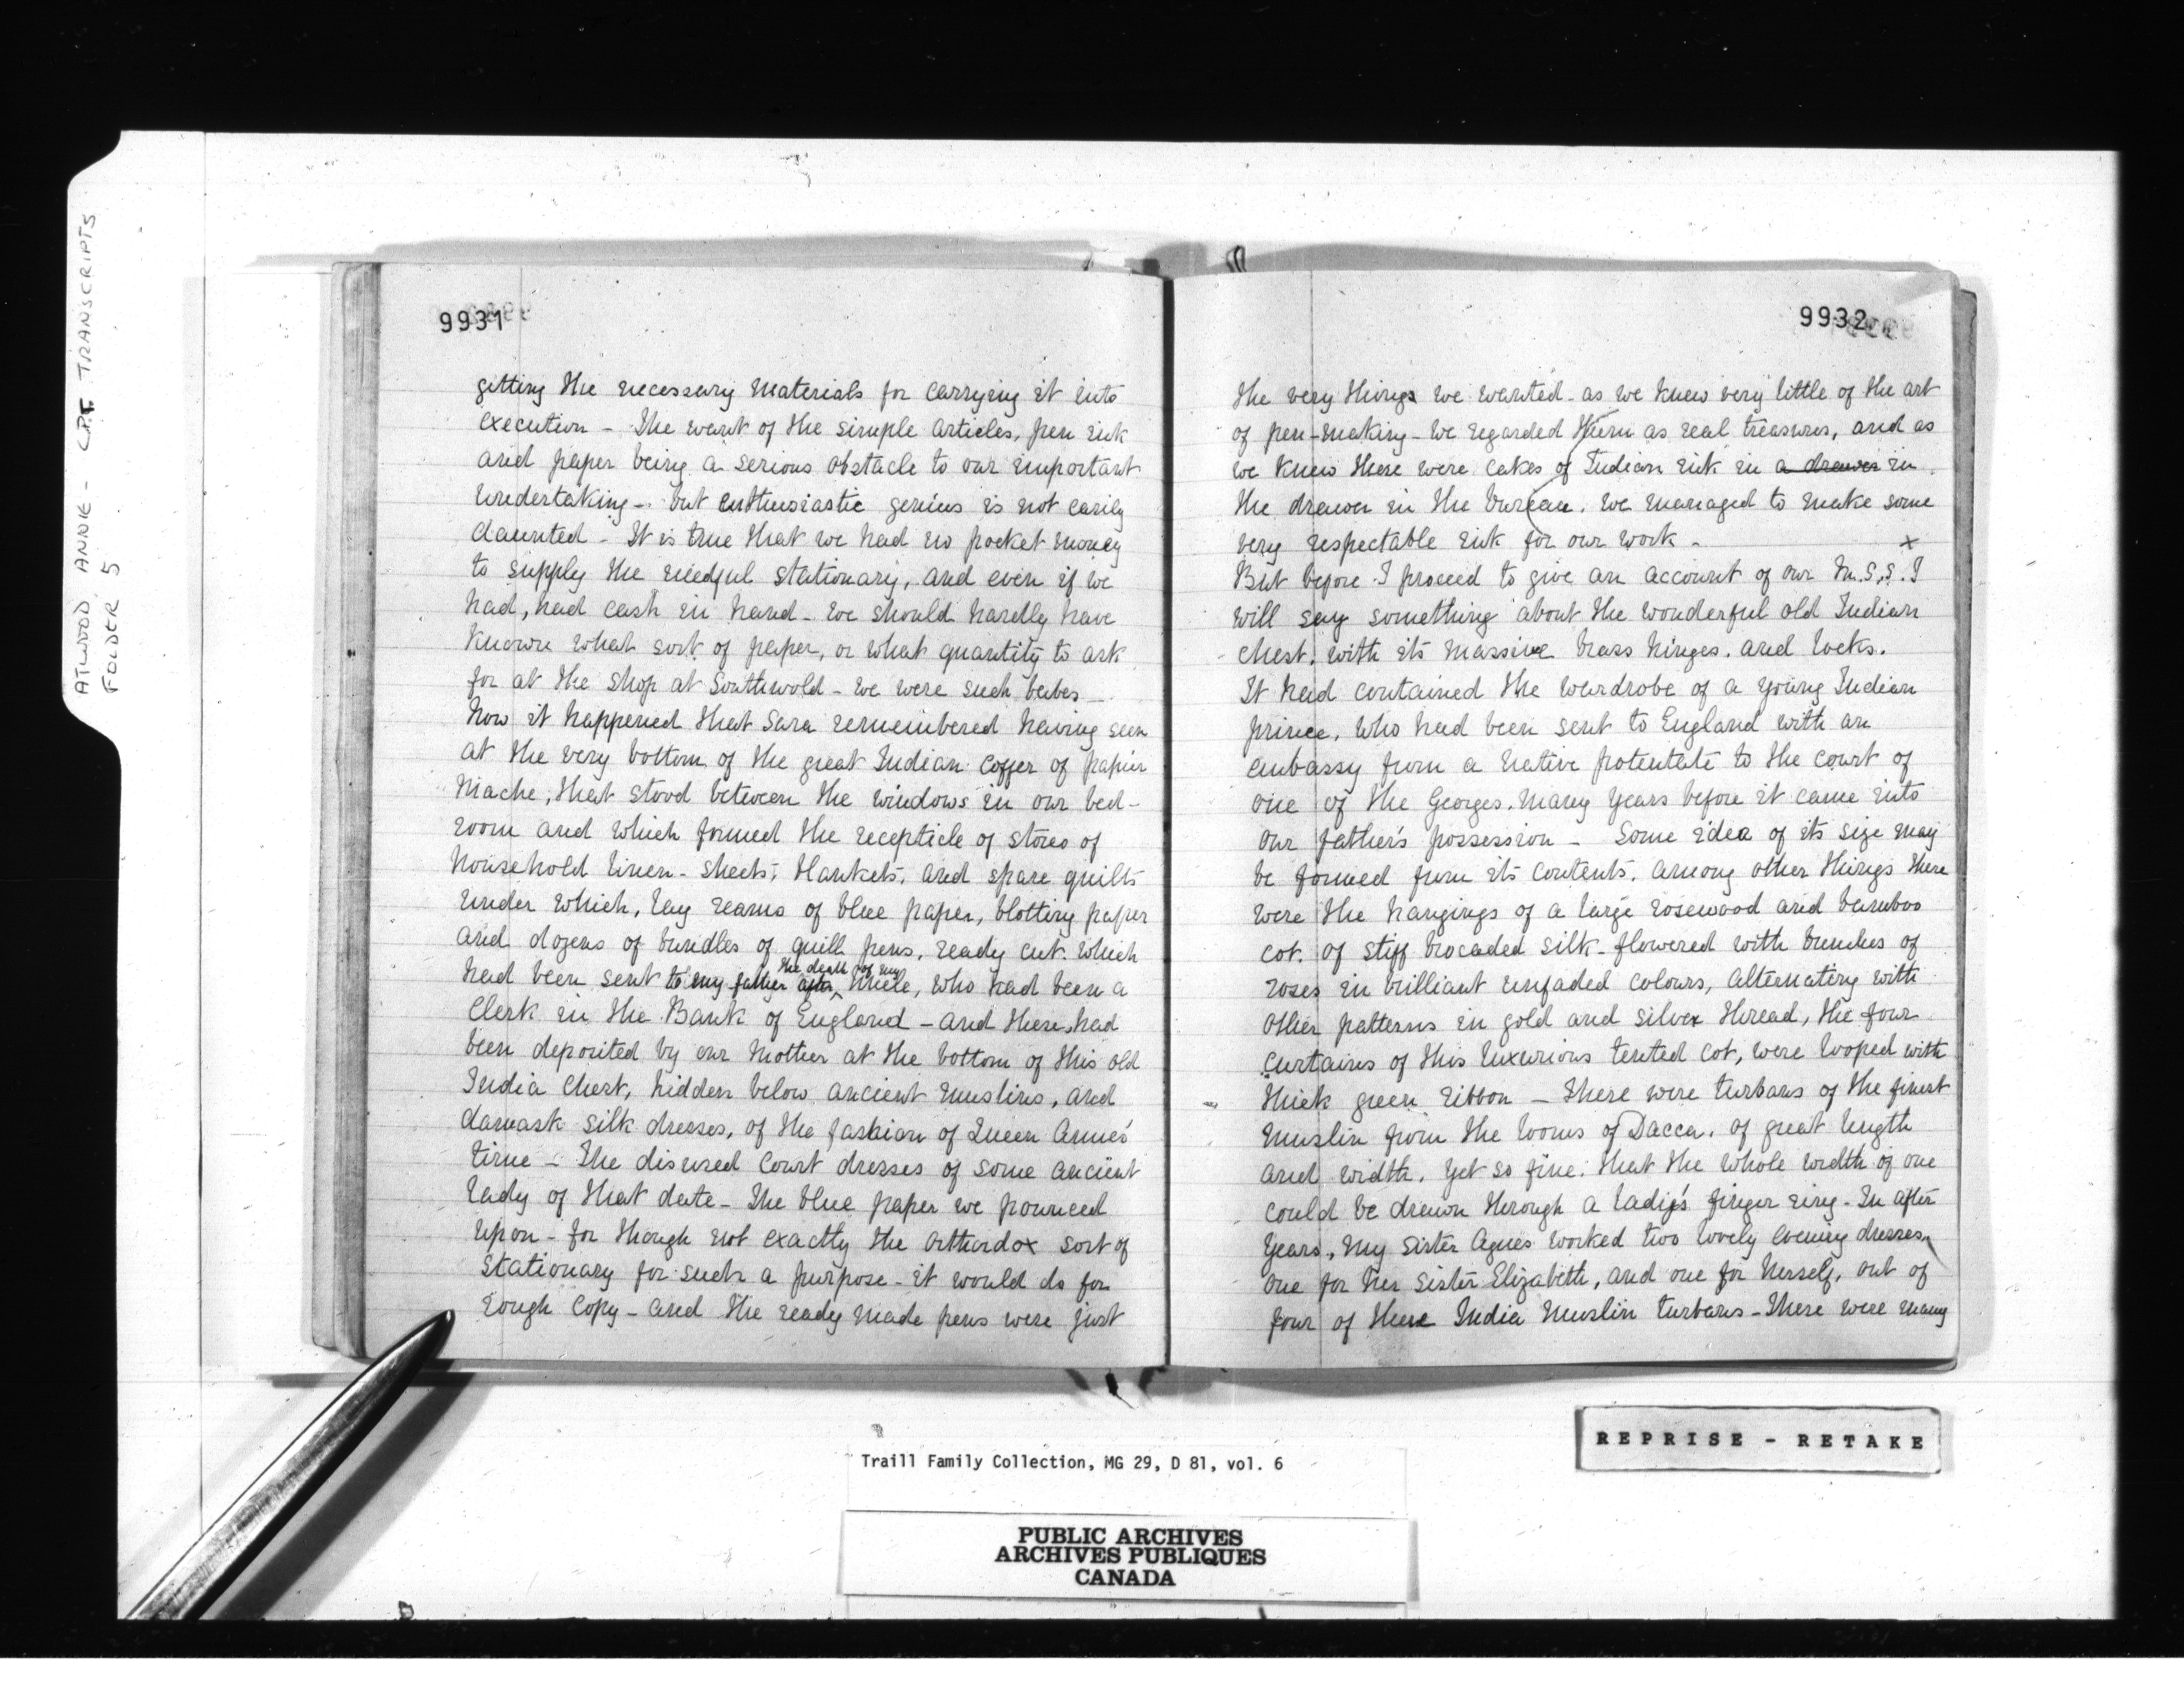 ATWOOD, ANNIE - C.P.T. TRANSCRIPTS
FOLDER 5
9931
getting the necessary materials for carrying it into
execution - The want of the simple articles, pen ink
and paper being a serious obstacle to our important
undertaking - but enthusiastic genius is not easily
daunted - It is true that we had no pocket money
to supply the needful stationary, and even if we
had, had cash in hand - we should hardly have
known what sort of paper, or what quantity to ask
for at the shop at Southwold - we were such babes -
Now it happened that Sara remembered having seen
at the very bottom of the great Indian coffer of papier
Mache, that stood between the windows in our bed-
room and which formed the recepticle of stores of
household linen - sheets, blankets, and spare quilts
under which, lay reams of blue paper, blotting paper
and dozens of bundles of quill pens, ready cut. which
the death of my
had been sent to my father after Uncle, who had been a
Clerk in the Bank of England - and these, had
been deposited by our Mother at the bottom of this old
India Chest, hidden below ancient muslins, and
damask silk dresses, of the fashion of Queen Anne's
time - The disused Court dresses of some ancient
lady of that date - The blue paper we pounced
upon - for though not exactly the orthordox sort of
Stationary for such a purpose - it would do for
rough Copy - and the ready made pens were just
9932
the very things we wanted - as we knew very little of the art
of pen-making - we regarded them as real treasures, and as
we knew there were cakes of Indian ink in a drawer in
the drawer in the bureau. we managed to make some
very respectable ink for our work -
x
But before I proceed to give an account of our M.S.S. I
will say something about the wonderful old Indian
chest. with its massive brass hinges. and locks.
It had contained the wardrobe of a young Indian
prince. who had been sent to England with an
embassy from a native potentate to the court of
one of the Georges. many years before it came into
our father's possession - Some idea of its size may
be formed from its contents. among other things there
were the hangings of a large rosewood and bamboo
cot. of stiff brocaded silk - flowered with bunches of
roses in brilliant unfaded colours, alternating with
other patterns in gold and silver thread, the four
curtains of this luxurious tented cot, were looped with
thick green ribbon - There were turbans of the finest
muslin from the looms of Dacca. of great length
and width. yet so fine. that the whole width of one
could be drawn through a lady's finger ring - In after
years, my sister Agnes worked two lovely evening dresses,
one for her sister Elizabeth, and one for herself, out of
four of these India Muslin turbans - There were many
REPRISE - RETAKE
Traill Family Collection, MG 29, D 81, vol. 6
PUBLIC ARCHIVES
ARCHIVES PUBLIQUES
CANADA